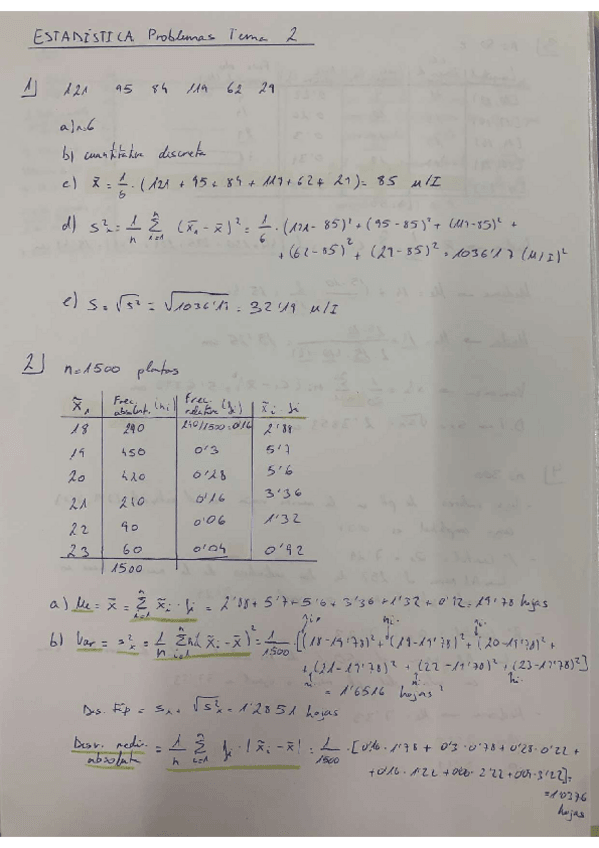 ESTADÍSTICA Problemas Tema 2
1) 121 95 84 119 62 29
a) n=6
b) cuantitativa discreta
c) x̄ = 1/6 · (121 + 95 + 84 + 119 + 62 + 29) = 85 µ/I
d) S²ₓ = 1/n Σ (x̃ᵢ - x̄)² = 1/6 · (121-85)² + (95-85)² + (119-85)² +
+ (62-85)² + (29-85)² = 1036'17 (µ/I)²
e) S = √s² = √1036'17 = 32'19 µ/I
2) n=1500 plantas
x̃ᵢ Frec. absolut. (nᵢ) Frec. relativa (fᵢ) x̃ᵢ · fᵢ
18 240 240/1500=0'16 2'88
19 450 0'3 5'7
20 420 0'28 5'6
21 240 0'16 3'36
22 90 0'06 1'32
23 60 0'04 0'92
1500
a) Me = x̄ = Σ x̃ᵢ · fᵢ = 2'88 + 5'7 + 5'6 + 3'36 + 1'32 + 0'92 = 19'78 hojas
b) Var = s²ₓ = 1/n Σ nᵢ (x̃ᵢ - x̄)² = 1/1500 · [(18-19'78)² + (19-19'78)² + (20-19'78)² +
+ (21-19'78)² + (22-19'78)² + (23-19'78)²]
= 1'6516 hojas²
Des. Típ = sₓ = √s²ₓ = 1'2851 hojas
Desv. media absoluta = 1/n Σ fᵢ · |x̃ᵢ - x̄| = 1/1500 · [0'16 · 1'78 + 0'3 · 0'78 + 0'28 · 0'22 +
+ 0'16 · 1'22 + 0'06 · 2'22 + 0'04 · 3'22] =
= 1'0376
hojas